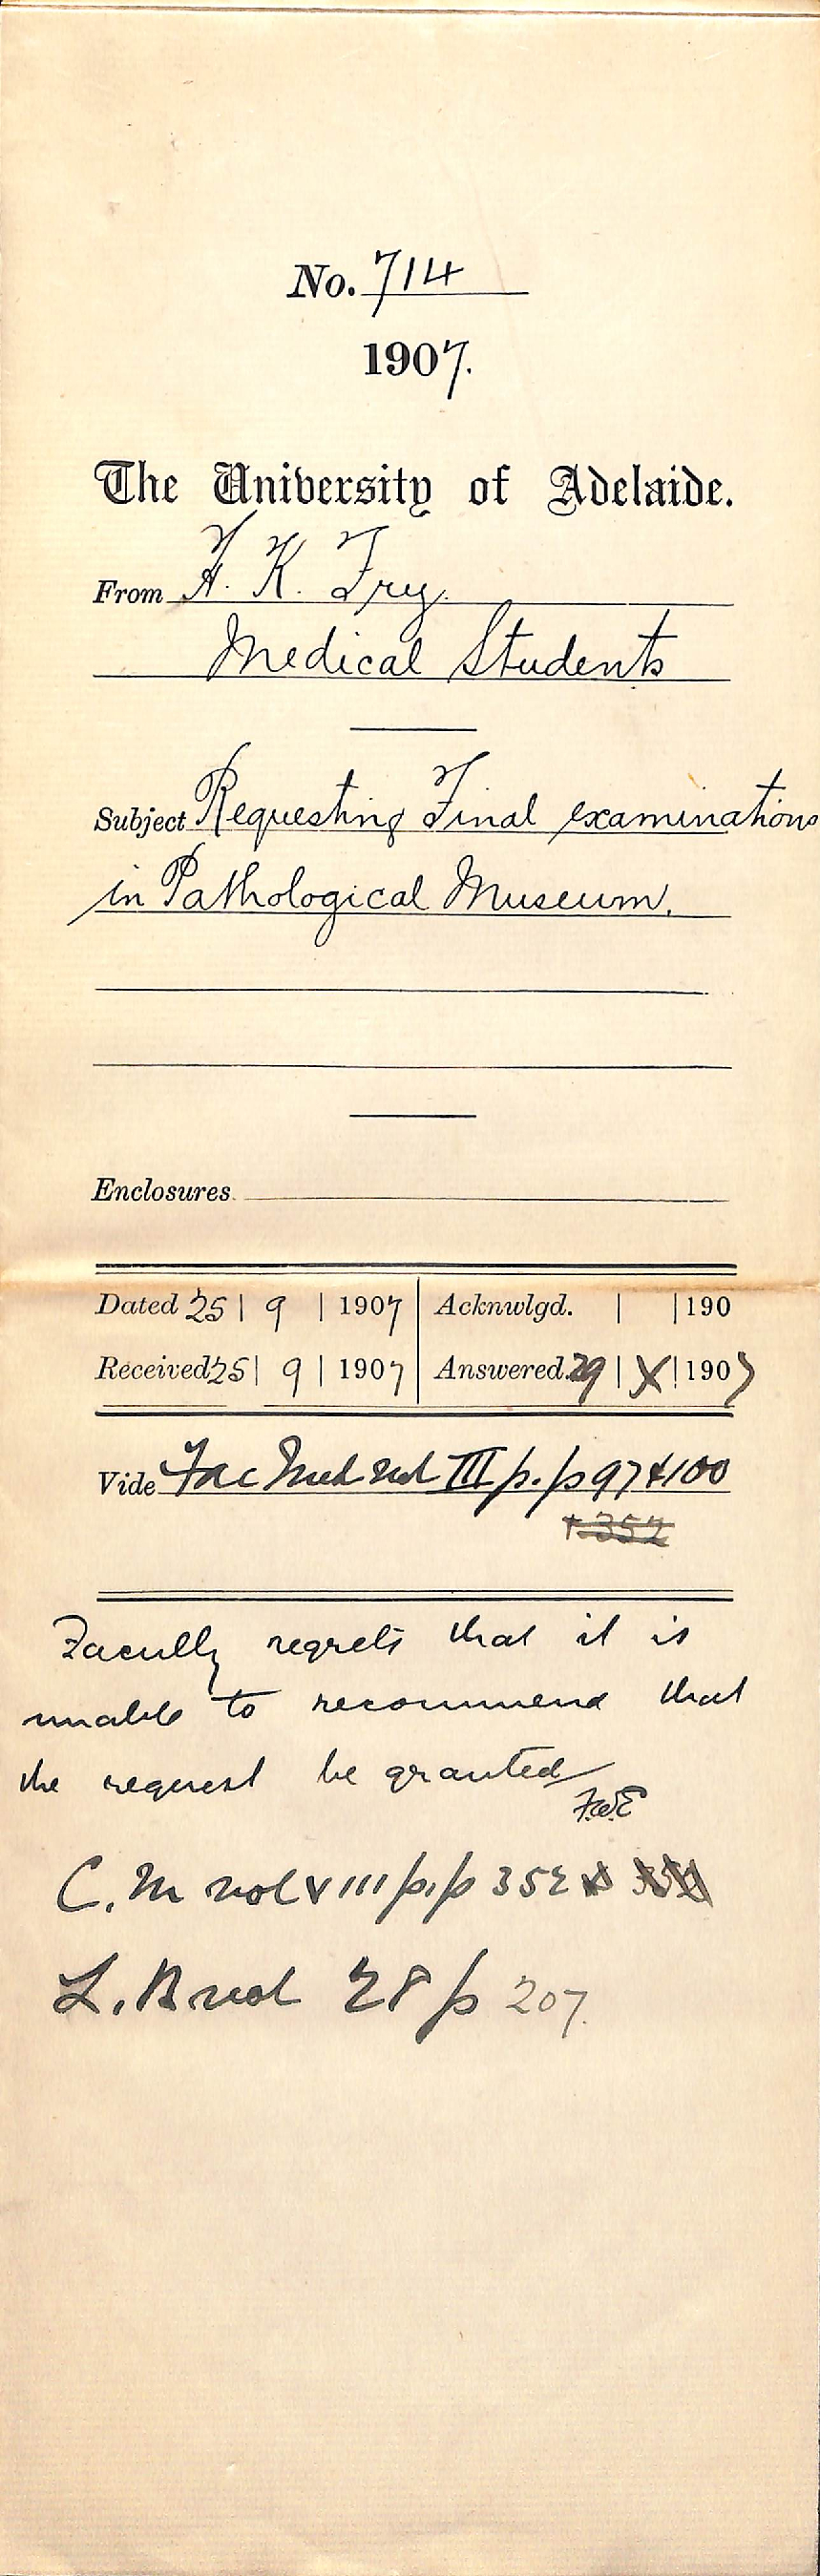 No. 714
1907.
The University of Adelaide.
From H. K. Fry.
Medical Students
Subject Requesting Final examinations
in Pathological Museum.
Enclosures
Dated 25 | 9 | 1907 Acknwlgd. | | 190
Received 25 | 9 | 1907 Answered. 29 | X | 1907
Vide Fac Med vol III p.p 97 & 100
Faculty regrets that it is
unable to recommend that
the request be granted
F.W.E
C. M vol VIII p.p 352
L. B vol 28 p 207.